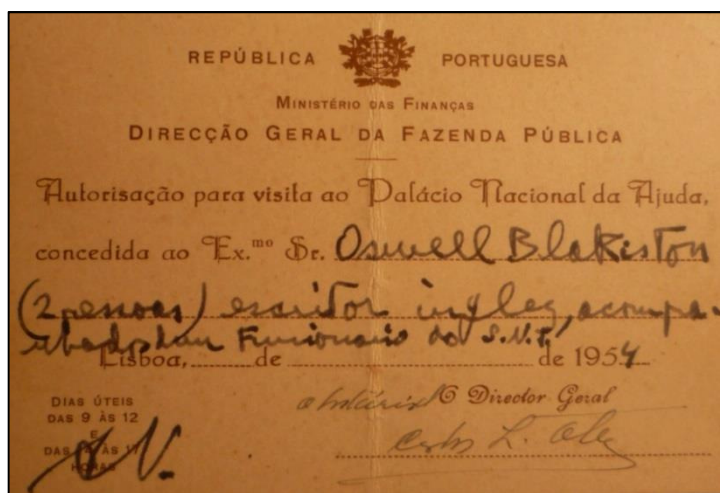 REPÚBLICA PORTUGUESA
MINISTÉRIO DAS FINANÇAS
DIRECÇÃO GERAL DA FAZENDA PÚBLICA
Autorisação para visita ao Palácio Nacional da Ajuda,
concedida ao Ex.mo Sr. Oswell Blakiston
(2 pessoas) escritor inglez, acompa-
nhado por um Funcionario do S.N.I.,
Lisboa, de de 1954
O Director Geral
DIAS ÚTEIS
DAS 9 ÀS 12
E
DAS ÀS 17
HORAS